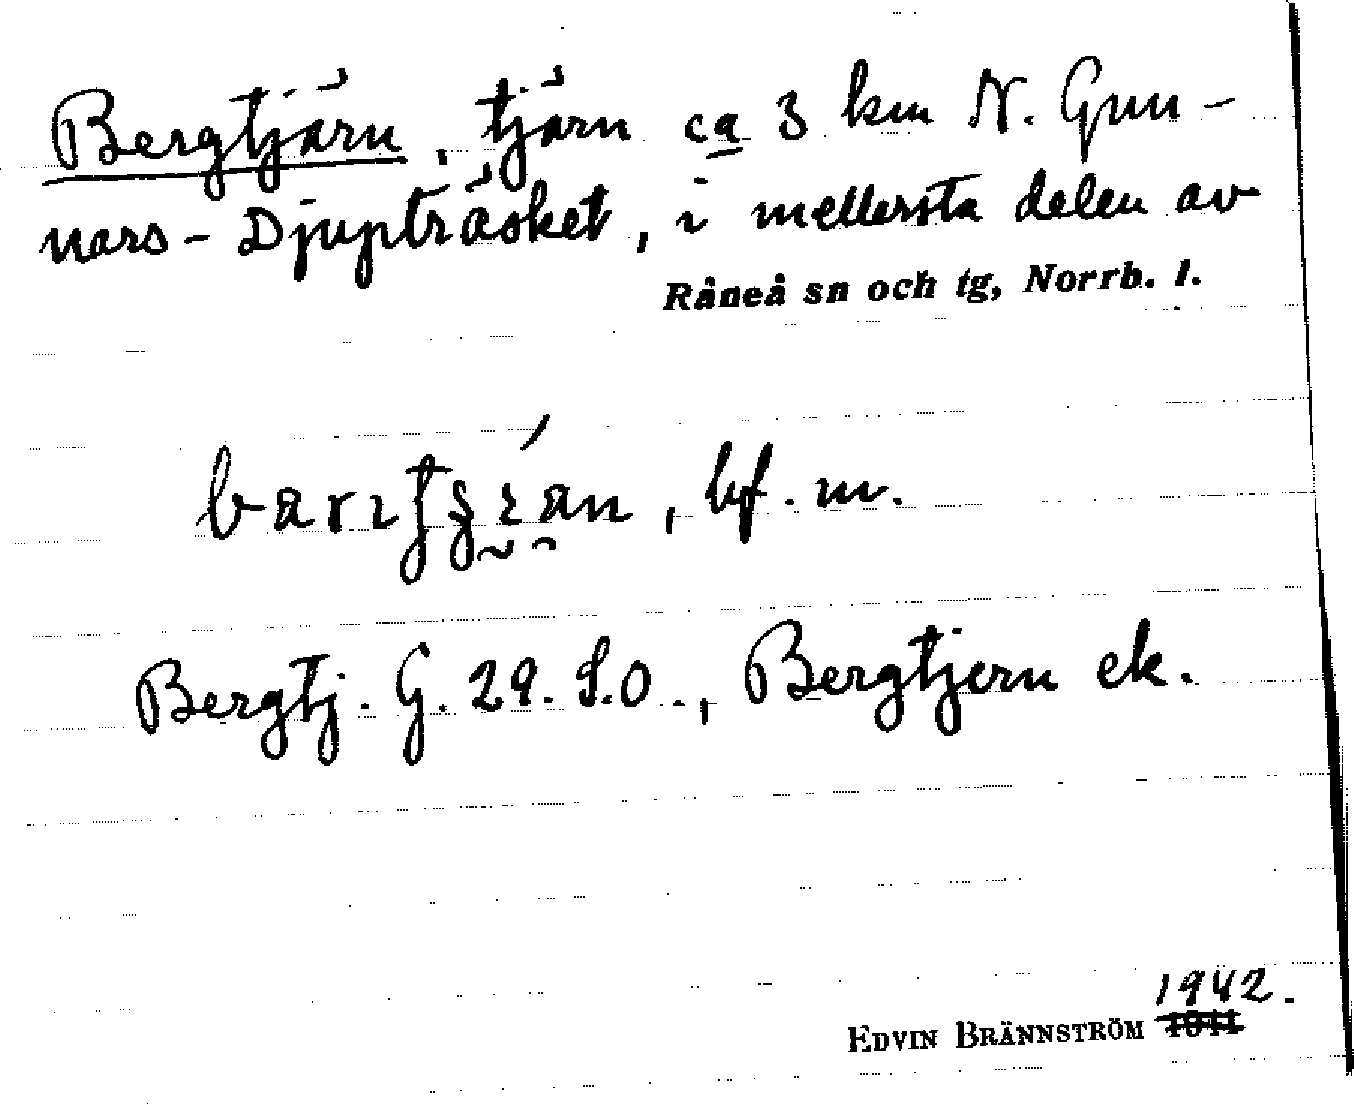 Bergtjärn, tjärn ca 3 km N. Gun-
nars-Djupträsket, i mellersta delen av
Råneå sn och tg, Norrb. l.
, bf. m.
Bergtj. G. 29. S.O., Bergtjern ek.
1942.
EDVIN BRÄNNSTRÖM 1941